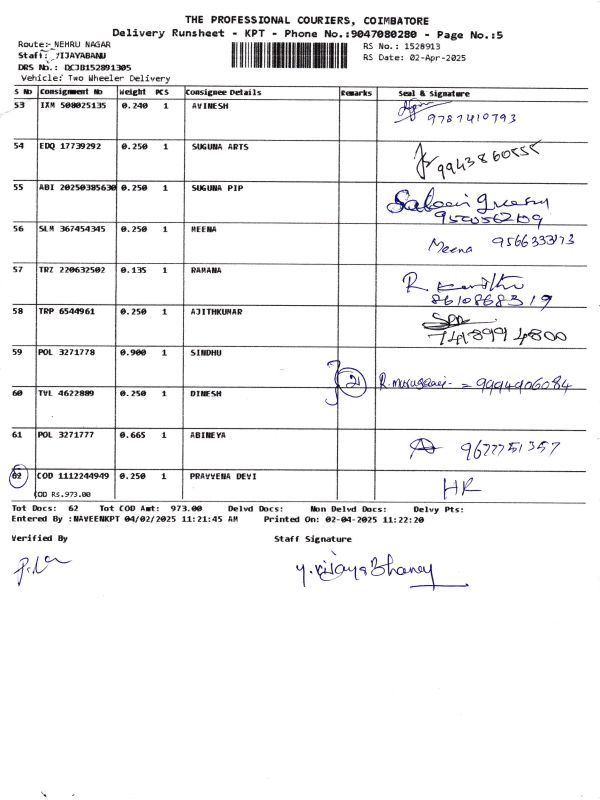 THE PROFESSIONAL COURIERS, COIMBATORE
Delivery Runsheet - KPT - Phone No.:9047080280 - Page No.:5
Route: NEHRU NAGAR RS No.: 1528913
Staff: VIJAYABANU RS Date: 02-Apr-2025
DRS No.: DCJB152891305
Vehicle: Two Wheeler Delivery
S No Consignment No Weight PCS Consignee Details Remarks Seal & Signature
53 IXM 508025135 0.240 1 AVINESH
9787410793
54 EDQ 17739292 0.250 1 SUGUNA ARTS
9943860555
55 ABI 20250385630 0.250 1 SUGUNA PIP
56 SLM 367454345 0.250 1 MEENA
Meena
57 TRZ 220632502 0.135 1 RAMANA
R.
8610868319
58 TRP 6544961 0.250 1 AJITHKUMAR
59 POL 3271778 0.900 1 SINDHU
2 = 9994906084
60 TVL 4622889 0.250 1 DINESH
61 POL 3271777 0.665 1 ABINEYA
9677751357
62 COD 1112244949 0.250 1 PRAVVENA DEVI
HR
COD RS.973.00
Tot Docs: 62 Tot COD Amt: 973.00 Delvd Docs: Non Delvd Docs: Delvy Pts:
Entered By :NAVEENKPT 04/02/2025 11:21:45 AM Printed On: 02-04-2025 11:22:20
Verified By Staff Signature